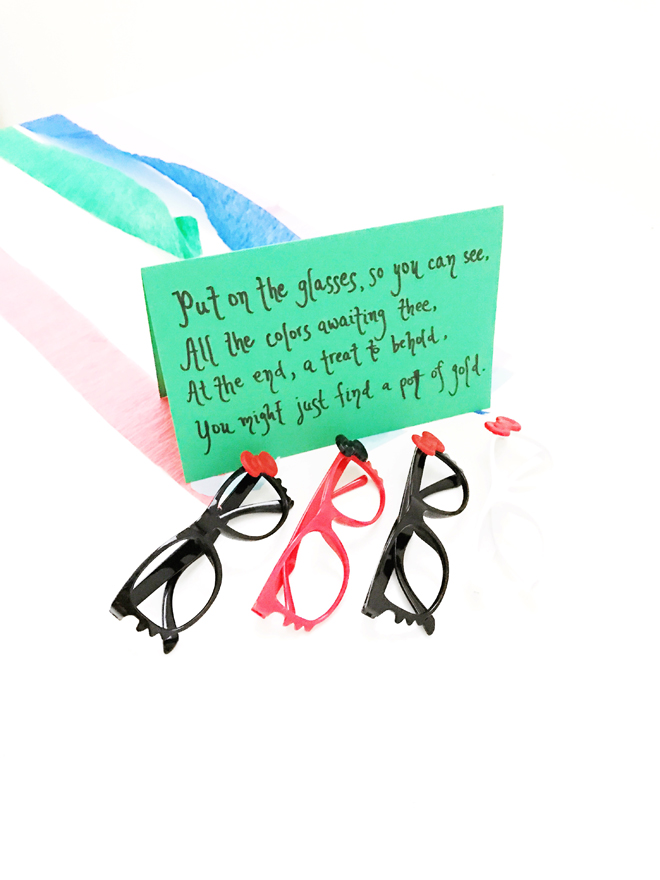 Put on the glasses, so you can see,
All the colors awaiting thee,
At the end, a treat to behold,
You might just find a pot of gold.